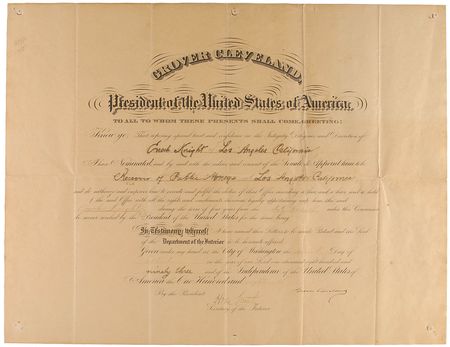 GROVER CLEVELAND,
President of the United States of America,
TO ALL TO WHOM THESE PRESENTS SHALL COME, GREETING:
Know ye: That reposing special trust and confidence in the Integrity, Diligence and Discretion of
Enoch Knight of Los Angeles California
I have Nominated, and by and with the advice and consent of the Senate, do Appoint him to be
Receiver of Public Moneys at Los Angeles California
and do authorize and empower him to execute and fulfil the duties of that Office according to law, and to have and to hold
the said Office with all the rights and emoluments thereunto legally appertaining unto him the said
during the term of four years from
the President of the United States for the time being
In Testimony whereof I have caused these Letters to be made Patent and the Seal
of the Department of the Interior to be hereunto affixed
Given under my hand at the City of Washington the Day of
in the year of our Lord one thousand eight hundred and
ninety three and of the Independence of the United States of
America the One Hundred and
By the President Grover Cleveland
Hoke Smith
Secretary of the Interior